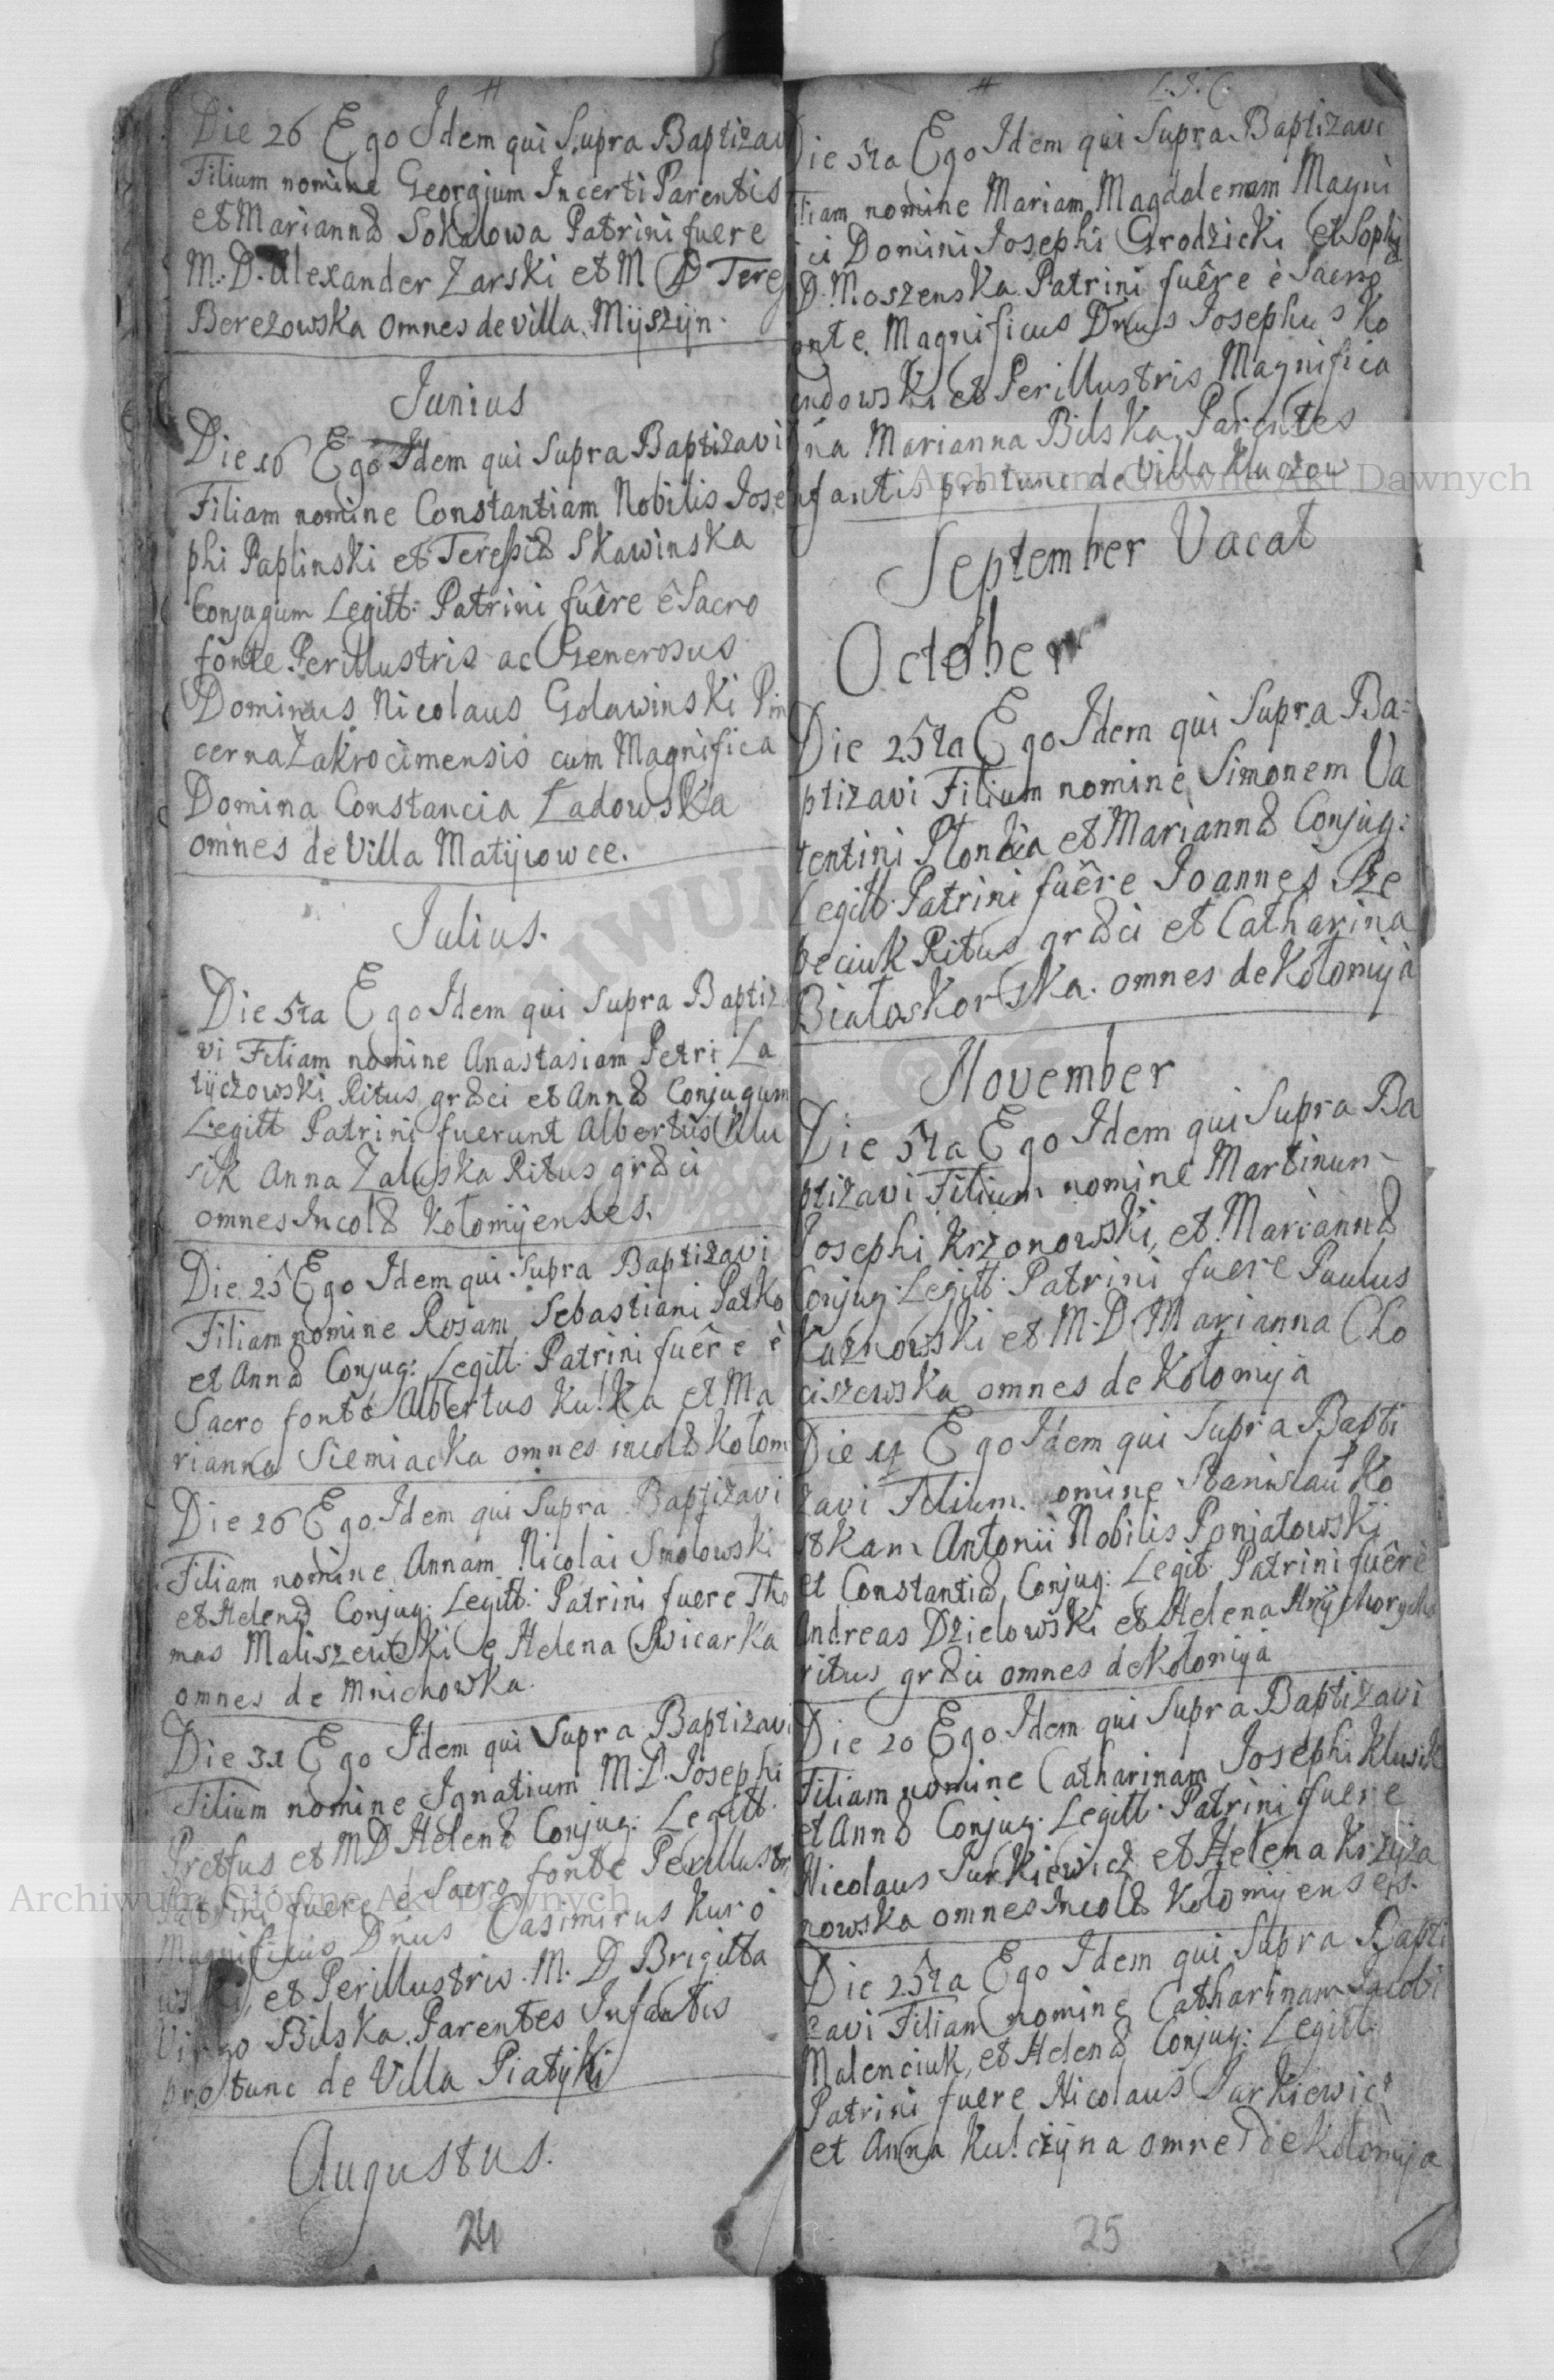 Die 26 Ego Idem qui Supra Baptizavi
Filium nomine Georgium Incerti Parentis
et Mariannæ Sokalowa Patrini fuere
M. D. Alexander Zarski et M D Teres
Berezowska omnes de villa Myszyn.
Junius
Die 16 Ego Idem qui Supra Baptizavi
Filiam nomine Constantiam Nobilis Jose
phi Paplinski et Teressiæ Skawinska
Conjugum Legitt: Patrini fuêre ê Sacro
fonte Perillustris ac Generosus
Dominus Nicolaus Golawinski Pin
cerna Zakrocimensis cum Magnifica
Domina Constancia Ładowska
omnes de Villa Matyiowce.
Julius.
Die 5ta Ego Idem qui Supra Baptiza
vi Filiam nomine Anastasiam Petri La
tyczowski Ritus græci et Annæ Conjugum
Legitt Patrini fuerunt Albertus Klu
sik Anna Zaluska Ritus græci
omnes Incolæ Kolomyenses.
Die 25 Ego Idem qui Supra Baptizavi
Filiam nomine Rosam Sebastiani Patko
et Annæ Conjug: Legitt: Patrini fuêre è
Sacro fonte Albertus Kulka et Ma
rianna Siemiacka omnes incolæ Kołom
Die 26 Ego Idem qui Supra Baptizavi
Filiam nomine Annam Nicolai Smolowski
et Helenæ Conjug: Legitt: Patrini fuere Tho
mas Maliszewski e Helena Swicarka
omnes de Mnichowka.
Die 31 Ego Idem qui Supra Baptizavi
Filium nomine Ignatium M. D. Josephi
Pretfus et MD Helenæ Conjug: Legitt.
Patrini fuere è Sacro fonte Perillustr
Magnificus Dnus Casimirus Kuro
wski, et Perillustris M. D Brigitta
Virgo Bilska. Parentes Infantis
pro tunc de Villa Piatyki
Augustus.
24
L. J. C.
Die 5ta Ego Idem qui Supra Baptizavi
Filiam nomine Mariam Magdalenam Magni
ici Domini Josephi Grodzicki et Sophiæ
D. Moszenska Patrini fuêre è Sacro
onte Magnificus Dnus Josephus Ko
endowski et Perillustris Magnifica
Dna Marianna Bilska, Parentes
nfantis pro tunc de Villa Kluczow
September Vacat
October
Die 25ta Ego Idem qui Supra Ba=
ptizavi Filium nomine Simonem Va
lentini Plondia et Mariannæ Conjug:
Legitt: Patrini fuêre Joannes Sze
beciuk Ritus græci et Catharina
Białoskorska. omnes de Kołomyia
November
Die 5ta Ego Idem qui Supra Ba
ptizavi Filium nomine Martinum
Josephi Krzonowski, et Mariannæ
Conjug: Legitt: Patrini fuere Paulus
Kuznowski et M. D Marianna Cho
ciszewska omnes de Kołomyia
Die Ego Idem qui Supra Bapti
zavi Filium nomine Stanislau Ko
stkam Antonii Nobilis Poniatowski
et Constantiæ Conjug: Legit: Patrini fuêre
Andreas Dzielowski et Helena
ritus græci omnes de Kolomyia
Die 20 Ego Idem qui Supra Baptizavi
Filiam nomine Catharinam Josephi Klusik
et Annæ Conjug: Legitt: Patrini fuere
Nicolaus Jurkiewicz et Helena Krzyża
nowska omnes Incolæ Kolomyenses.
Die 25ta Ego Idem qui Supra Bapti
zavi Filiam nomine Catharinam Jacobi
Malenciuk, et Helenæ Conjug: Legitt.
Patrini fuere Nicolaus Jurkiewicz
et Anna Kulczyna omnes de Kołomyia
25
Archiwum Główne Akt Dawnych
Archiwum Główne Akt Dawnych